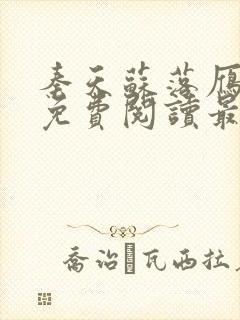 奏天蘇落雁
免費閱讀最
喬治·瓦西拉